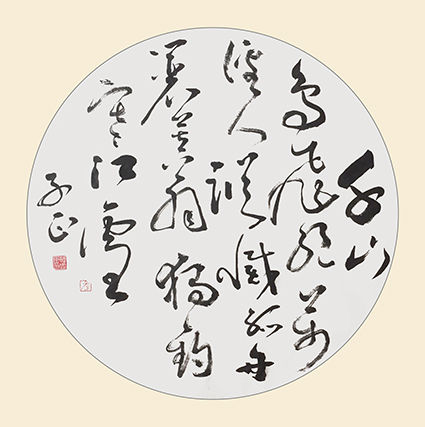 千山
鳥飛絕萬
徑人蹤滅孤舟
蓑笠翁獨釣
寒江雪
子正